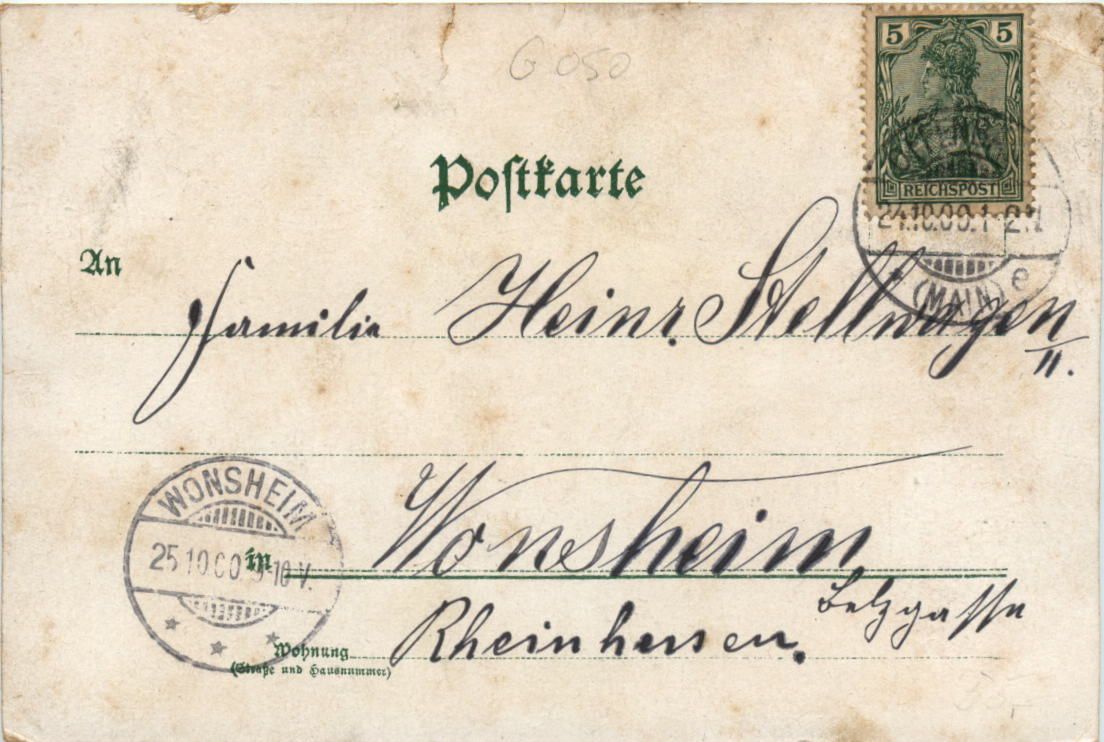 G 050
5 5
REICHSPOST
Postkarte
24.10.00.1-2N
(MAIN) e
An
Familie Heinr. Stellwagen
II.
WONSHEIM
25 10 00 9-10 V.
in
Wonsheim
Rheinhessen.
Wohnung
(Straße und Hausnummer)